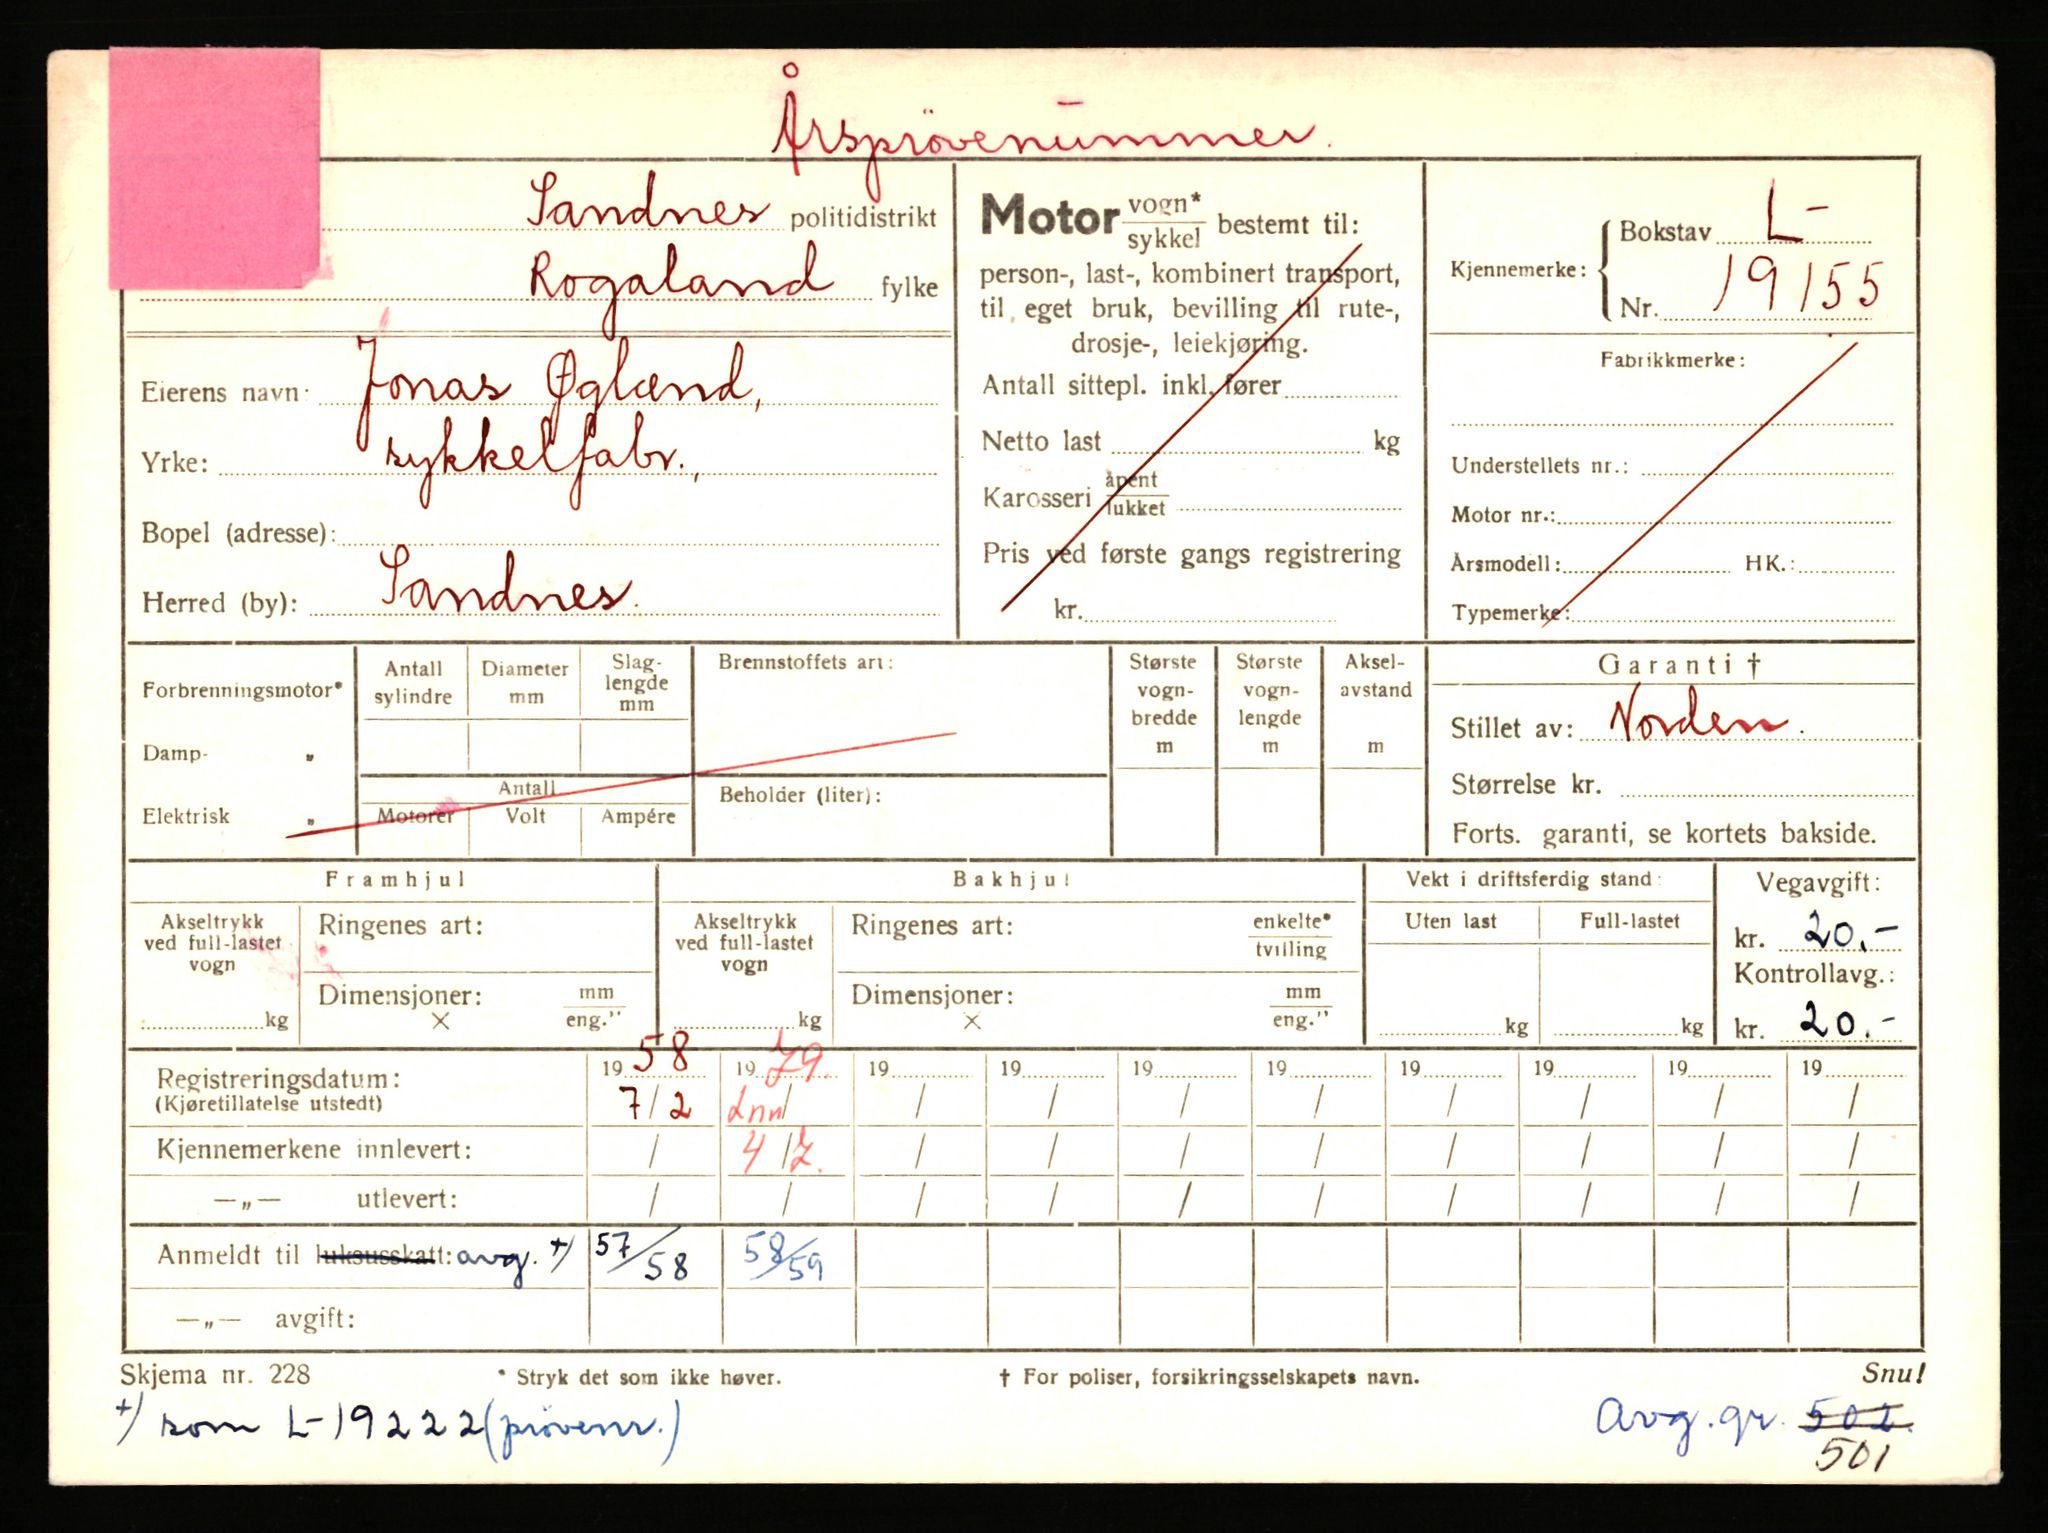 Årsprövenummer.
Sandnes politidistrikt
Rogaland fylke
Eierens navn: Jonas Øglænd,
Yrke: sykkelfabr.,
Bopel (adresse):
Herred (by): Sandnes.
Motor vogn* / sykkel bestemt til:
person-, last-, kombinert transport,
til eget bruk, bevilling til rute-,
drosje-, leiekjøring.
Antall sittepl. inkl. fører
Netto last kg
Karosseri åpent / lukket
Pris ved første gangs registrering
kr.
Kjennemerke: Bokstav L-
Nr. 19155
Fabrikkmerke:
Understellets nr.:
Motor nr.:
Årsmodell: HK.:
Typemerke:
Forbrenningsmotor*
Damp- „
Elektrisk „
Antall sylindre
Diameter mm
Slag-lengde mm
Antall
Motorer Volt Ampére
Brennstoffets art:
Beholder (liter):
Største vogn-bredde m
Største vogn-lengde m
Aksel-avstand m
Garanti †
Stillet av: Norden.
Størrelse kr.
Forts. garanti, se kortets bakside.
Framhjul
Akseltrykk ved full-lastet vogn
kg
Ringenes art:
Dimensjoner: mm / eng."
×
Bakhjul
Akseltrykk ved full-lastet vogn
kg
Ringenes art: enkelte* / tvilling
Dimensjoner: mm / eng."
×
Vekt i driftsferdig stand:
Uten last Full-lastet
kg kg
Vegavgift:
kr. 20.-
Kontrollavg.:
kr. 20.-
Registreringsdatum: 19 58 19 79. 19 19 19 19 19 19 19 19
(Kjøretillatelse utstedt) 7/2 Inn/ / / / / / / / /
Kjennemerkene innlevert: / 4/7. / / / / / / / /
—„— utlevert: / / / / / / / / / /
Anmeldt til luksusskatt: avg. +) 57/58 58/59
—„— avgift:
Skjema nr. 228 * Stryk det som ikke høver. † For poliser, forsikringsselskapets navn. Snu!
+) som L-19222 (prövenr.)
Avg. gr. 502.
501